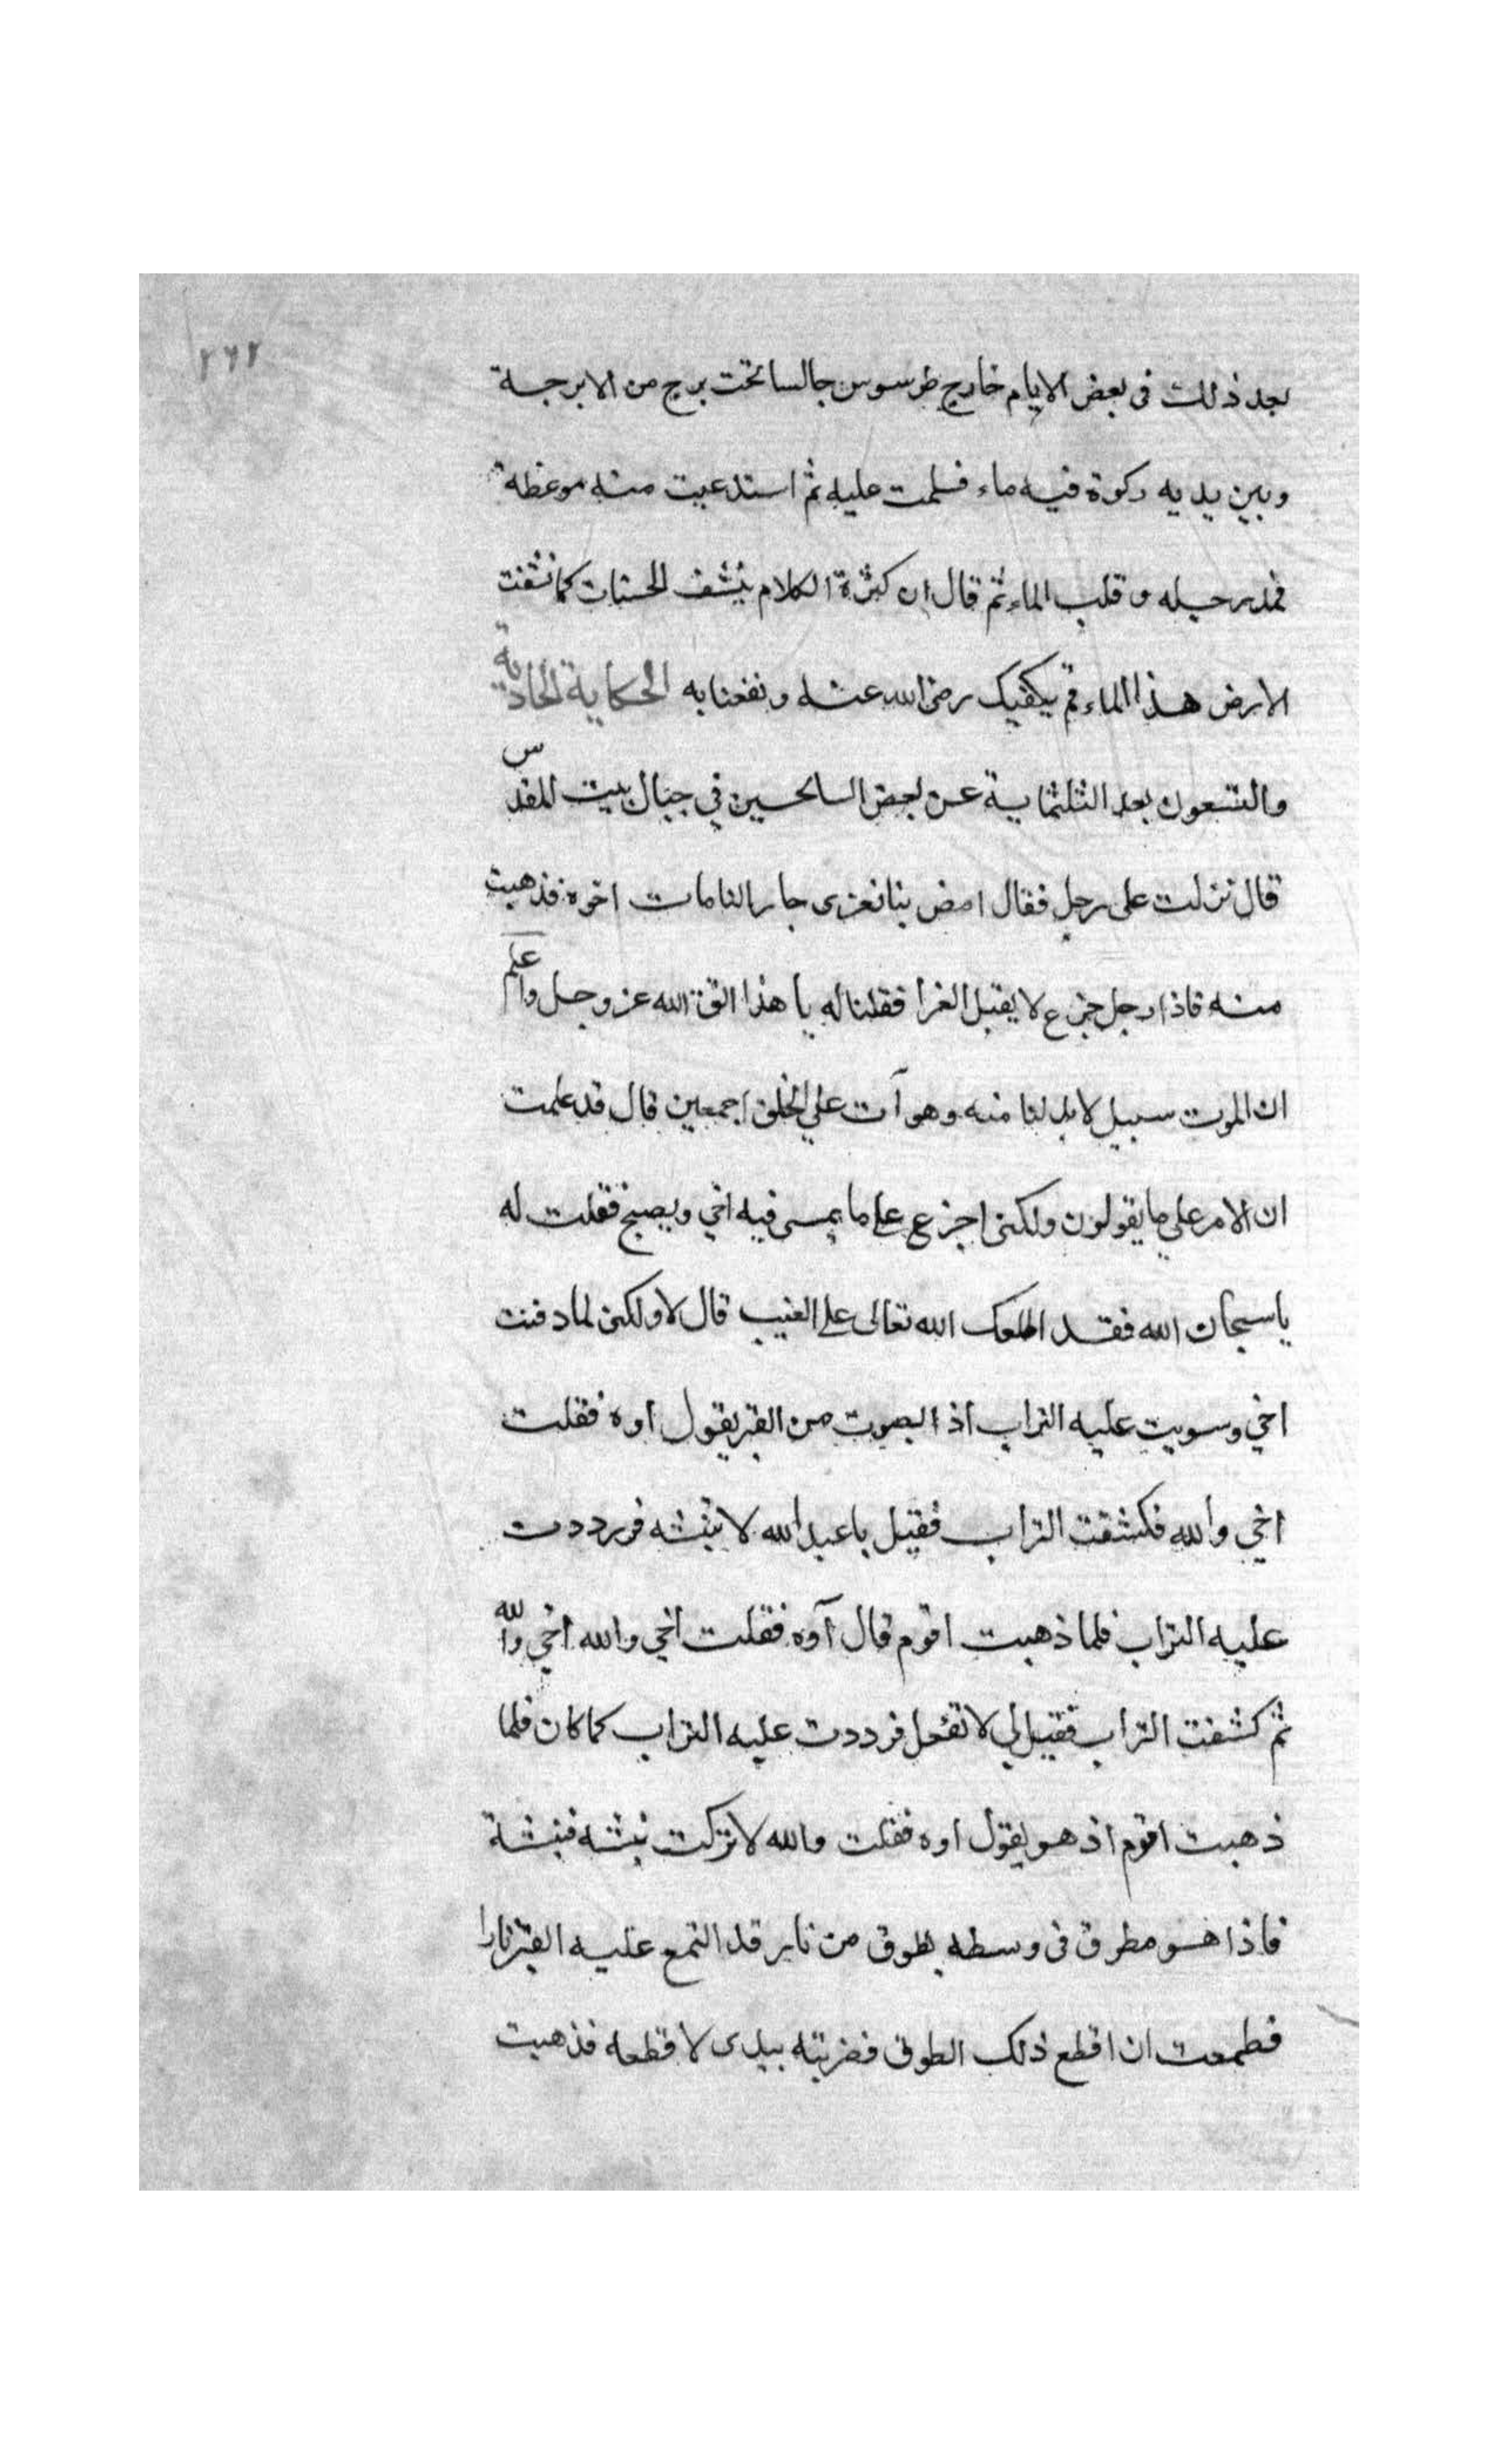 ٢٦٢
بعد ذلك فى بعض الايام خارج طرسوس جالسا تحت برج من الابرجة
وبين يديه ركوة فيه ماء فسلمت عليه ثم استدعيت منه موعظة
فمد رجله وقلب الماء ثم قال ان كثرة الكلام ينشف الحسنات كما نشفت
الارض هذا الماء قم يكفيك رضى الله عنه ونفعنا به الحكاية الحادية
والتسعون بعد الثلثماية عن بعض السايحين في جبال بيت المقدس
قال نزلت على رجل فقال امض بنا نعزى جارا لنا مات اخوه فذهبت
منه فاذا رجل جزع لا يقبل العزا فقلنا له يا هذا اتق الله عز وجل واعلم
ان الموت سبيل لابد لنا منه وهو آت علي الخلق اجمعين قال قد علمت
ان الامر علي ما يقولون ولكنى اجزع على ما يمسى فيه اخي ويصبح فقلت له
يا سبحان الله فقد اطلعك الله تعالى على الغيب قال لا ولكن لما دفنت
اخي وسويت عليه التراب اذا بصوت من القبر يقول اوه فقلت
اخي والله فكشفت التراب فقيل يا عبد الله لا تنبشه فرددت
عليه التراب فلما ذهبت اقوم قال آوه فقلت اخي والله اخي والله
ثم كشفت التراب فقيل لي لا تفعل فرددت عليه التراب كما كان فلما
ذهبت اقوم اذ هو يقول اوه فقلت والله لا تركت نبشه فنبشة
فاذا هو مطوق فى وسطه بطوق من نار قد التمع عليه القبر نارا
فطمعت ان اقطع ذلك الطوق فضربته بيدى لا قطعه فذهبت